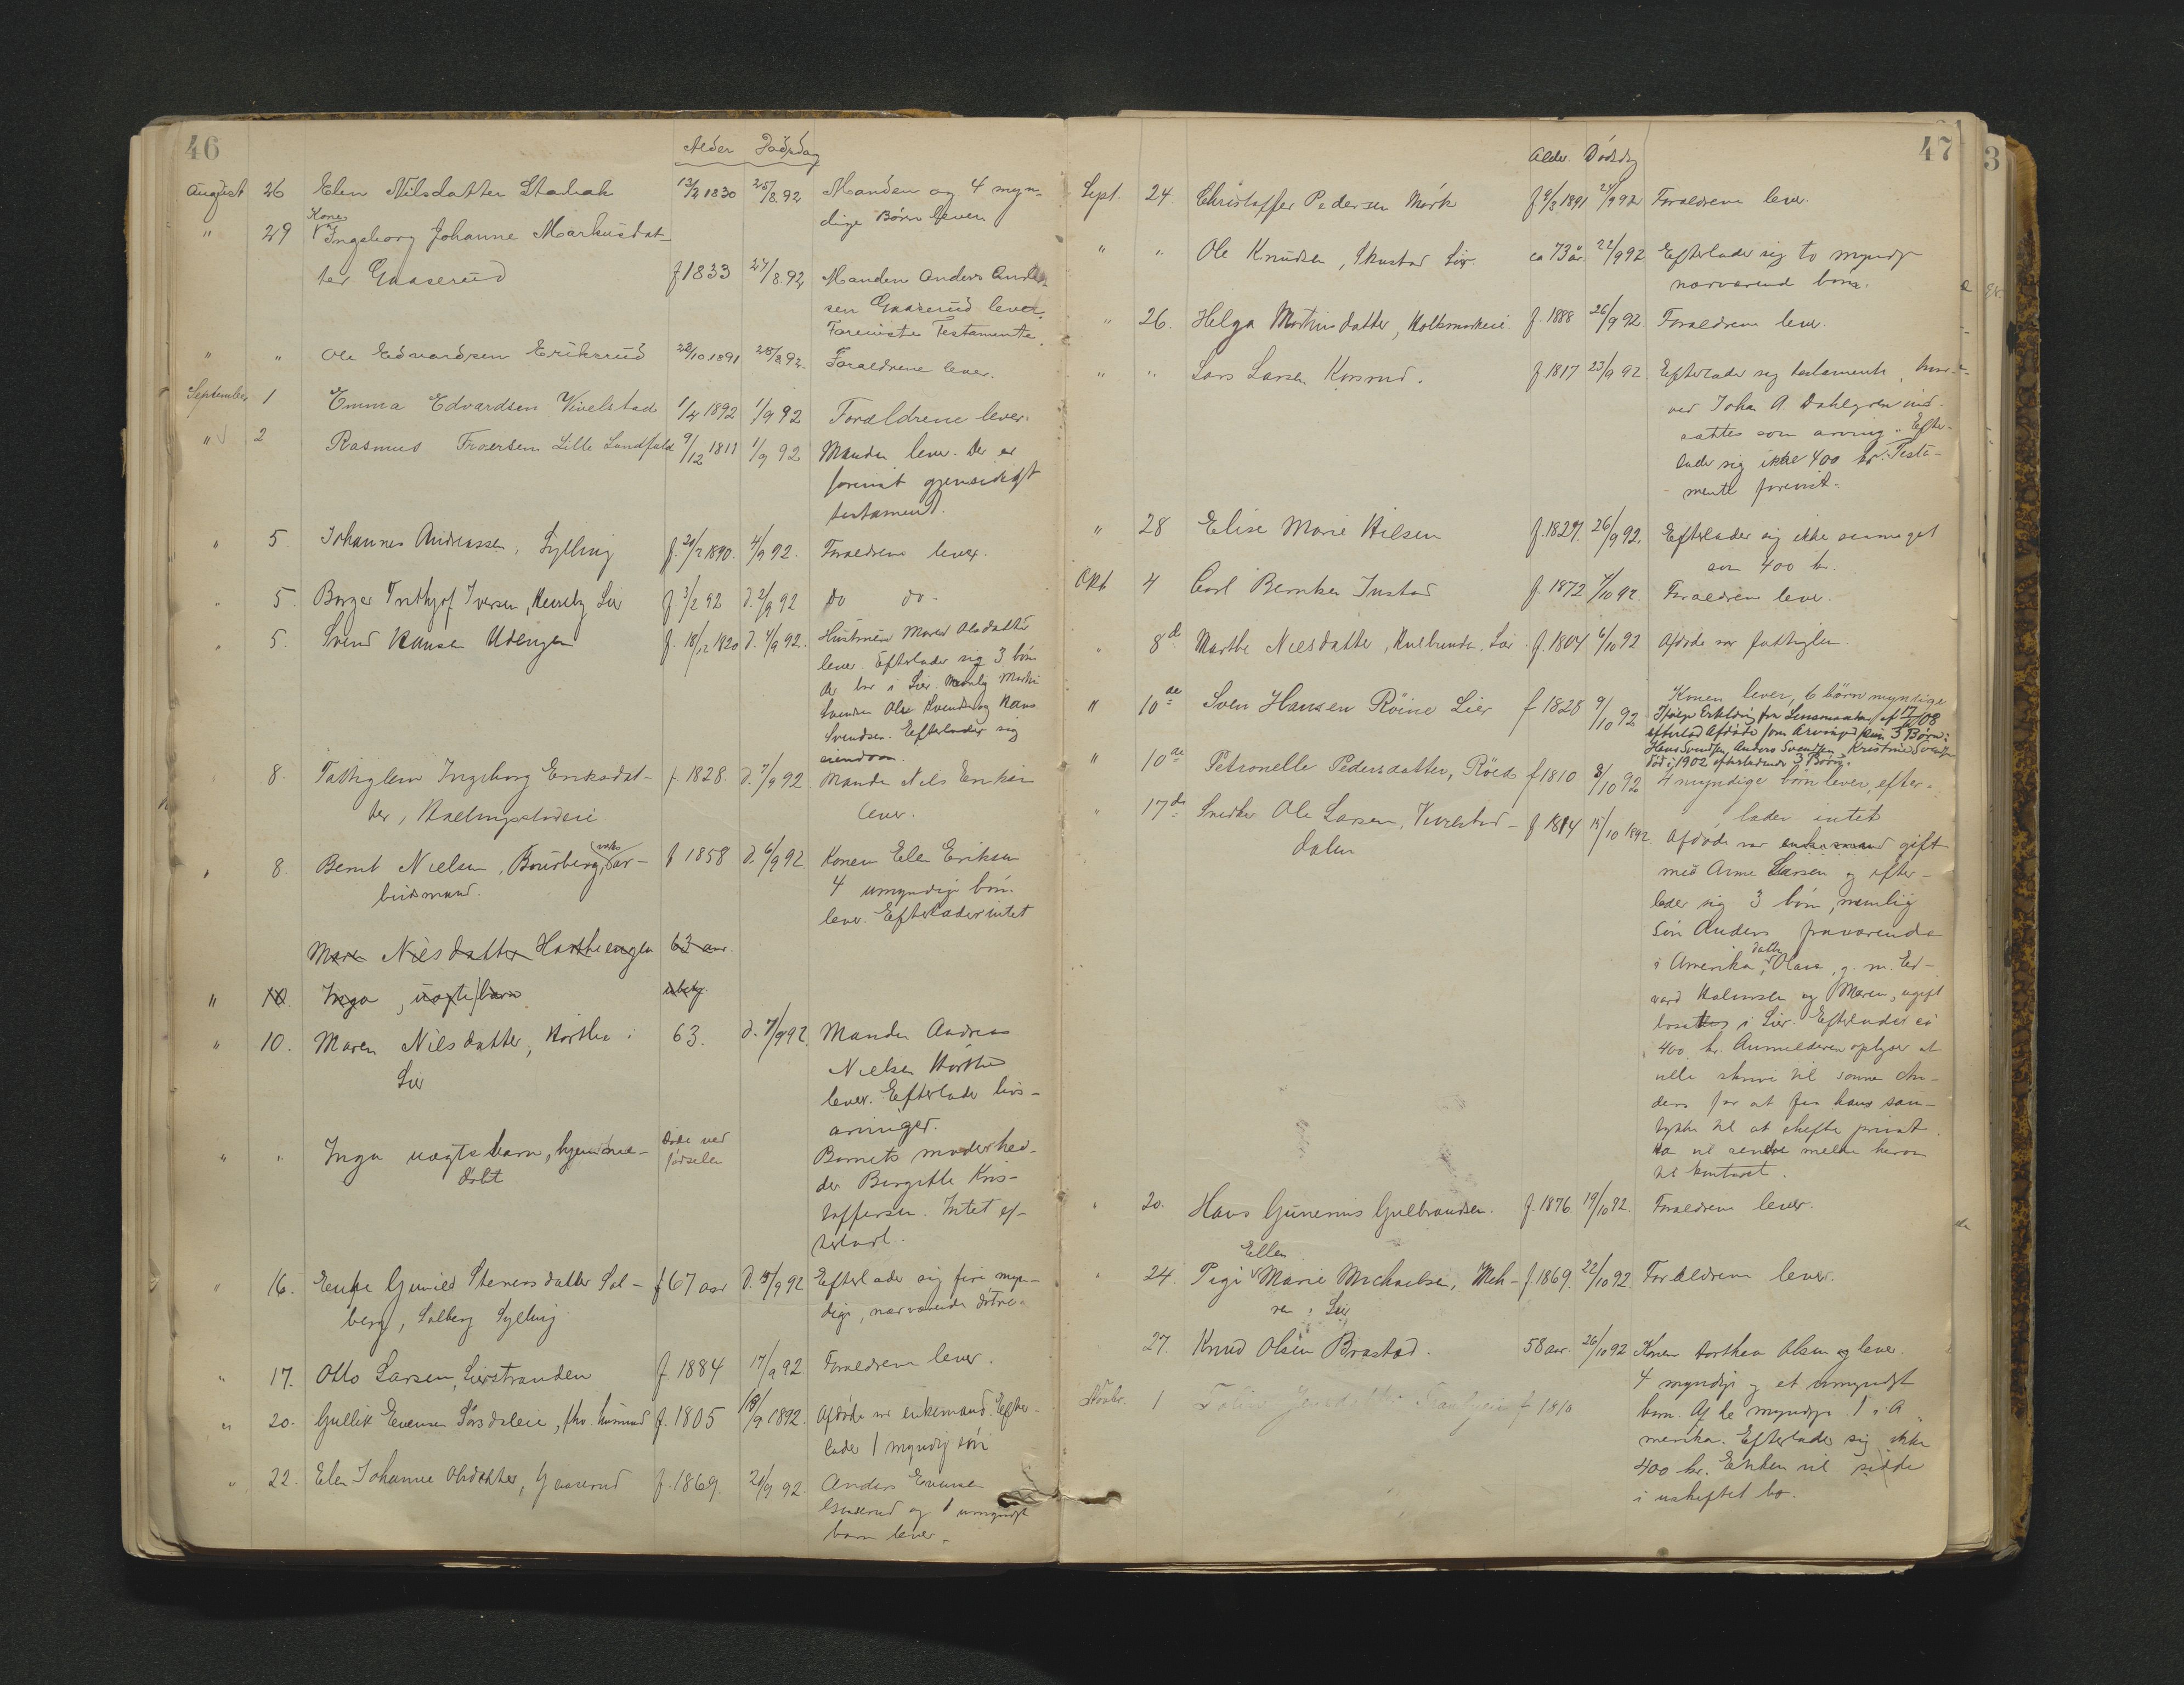 46
Alder Dødsdag
August 26 Elen Nilsdatter Stabæk 13/4 1830 25/8 92 Manden og 4 myn-
dige Børn lever
Kone
" 29 Ingeborg Johanne Markusdat-
ter Gaaserud f 1833 27/8 92 Manden Anders Andr-
sen Gaaserud lever.
Foreviste Testamente.
" " Ole Edvardsen Eriksrud 28/10 1891 28/8 92. Forældrene lever.
September 1 Emma Edvardsen Vivelstad 1/4 1892 1/9 92 Forældrene lever.
" 2 Rasmus Lille Landfald 9/12 1811 1/9 92 Manden lever. Der er
forevist gjensidigt
testament.
" 5 Johannes Andreassen, Sylling f. 1890. 4/9 92. Forældrene lever.
" 5. Borger Frithjof Iversen, Lier f. 3/2 92 d. 2/9 92 do do -
" 5. Svend Hansen Udengen f. 18/12 1820 d. 4/9 92. Hustruen Maren Olsdatter
lever. Efterlader sig 3 børn
der bor i Lier. Nemlig
Svendsen Olse Svendsen og Hans
Svendsen. Efterlader sig
eiendom.
8. Fattiglem Ingeborg Eriksdat- f. 1828. d. 7/9 92. Manden Nils Eriksen
ter, lever.
" 8. Bernt Nielsen, Bourberg, ar- f 1858 d. 6/9 92 Konen Elen Eriksen
beidsmand. 4 umyndige børn
lever. Efterlader intet
Maren Nilsdatter Hartheengen 63 aar.
" 10. Inga, uægte barn
" 10. Maren Nilsdatter, Hørthe i 63. d. 7/9 92. Manden Andreas
Lier Nielsen Hørthe
lever. Efterlader livs-
arvinger.
" " Inga uægte barn, hjemme- Døde ved
døbt fødselen Barnets moder hed-
der Birgitte Kris-
toffersen. Intet ef-
terladt.
" 16. Enke Gunild Steners datter Sol- f 67 aar d. 15/9 92 Efterlader sig fire myn-
berg, Solberg Sylling dige, nærværende døtre.
" 17. Otto Larsen, Lierstranden f 1884 17/9 92. Forældrene lever.
" 20. Gullik Evensen Sørsdaleie, fhv. husmand f. 1805 18/9 1892. Afdøde var enkemand. Efter-
lader 1 myndig søn
" 22. Elen Johanne Olsdatter, Gaaserud f. 1869. 20/9 92. Anders Evensen
Gaaserud og 1 umyndigt
barn lever.
47
3
Alder. Dødsdag
Sept. 24. Christoffer Pedersen Mørk f 9/3 1891 21/9 92 Forældrene lever.
" " Ole Knudsen, Skustad Lier ca 73 år. 22/9 92 Efterlader sig to myndige
nærværende børn.
" 26. Helga Martinsdatter, f. 1888 26/9 92. Forældrene lever.
" " Lars Larsen Korsrud. f. 1817 23/9 92. Efterlader sig testamente, hvor-
ved Johan A. Dahlgren ind-
sattes som arving. Efter-
lader sig ikke 400 kr. Testa-
mente forevist.
" 28 Elise Marie Nilsen f. 1829. 26/9 92. Efterlader sig ikke saameget
som 400 kr.
Okt 4 Carl Berntsen Justad f. 1872 4/10 92. Forældrene lever.
" 8d Marthe Nilsdatter, Lier f. 1804 6/10 92 Afdøde var fattiglem.
" 10de Sven Hansen Röine Lier f 1828 9/10 92 Konen lever, 6 børn myndige
Ifølge Erklæring fra Lensmanden af 17/ 08
efterlod Afdøde som Arvinger kun 3 Børn:
Hans Svendsen, Anders Svendsen, Kristine Svendsen
død i 1902 efterladende 3 Børn.
" 10de Petronelle Pedersdatter, Röed f 1810 8/10 92 4 myndige børn lever, efter-
lader intet
" 17de Snedker Ole Larsen, Vivelstad- f 1814 15/10 1892 Afdøde var enkemand gift
dalen med Anne Larsen og efter-
lader sig 3 børn, nemlig
Søn Anders fraværende
i Amerika, datter Olava, g. m. Ed-
vard Halvorsen og Maren, ugift
bosatte i Lier. Efterlader ca
400 kr. Anmelderen oplyser at
ville skrive til sønnen An-
ders for at faa hans sam-
tykke til at skifte privat.
Han vil sende melde herom
til kontoret.
" 20. Hans Gunerius Gulbrandsen. f. 1876. 19/10 92. Forældrene lever.
Ellen
" 24. Pige Marie Michaelsen, Meh- f. 1869. 22/10 92. Forældrene lever.
ren i Lier
27. Knud Olsen Brastad. 58 aar. 26/10 92 Konen Dorthea Olsen lever.
4 myndige og et umyndigt
barn. Af de myndige 1 i A-
merika. Efterlader sig ikke
400 kr. Enken vil sidde
i uskiftet bo.
Novbr. 1 f 1810